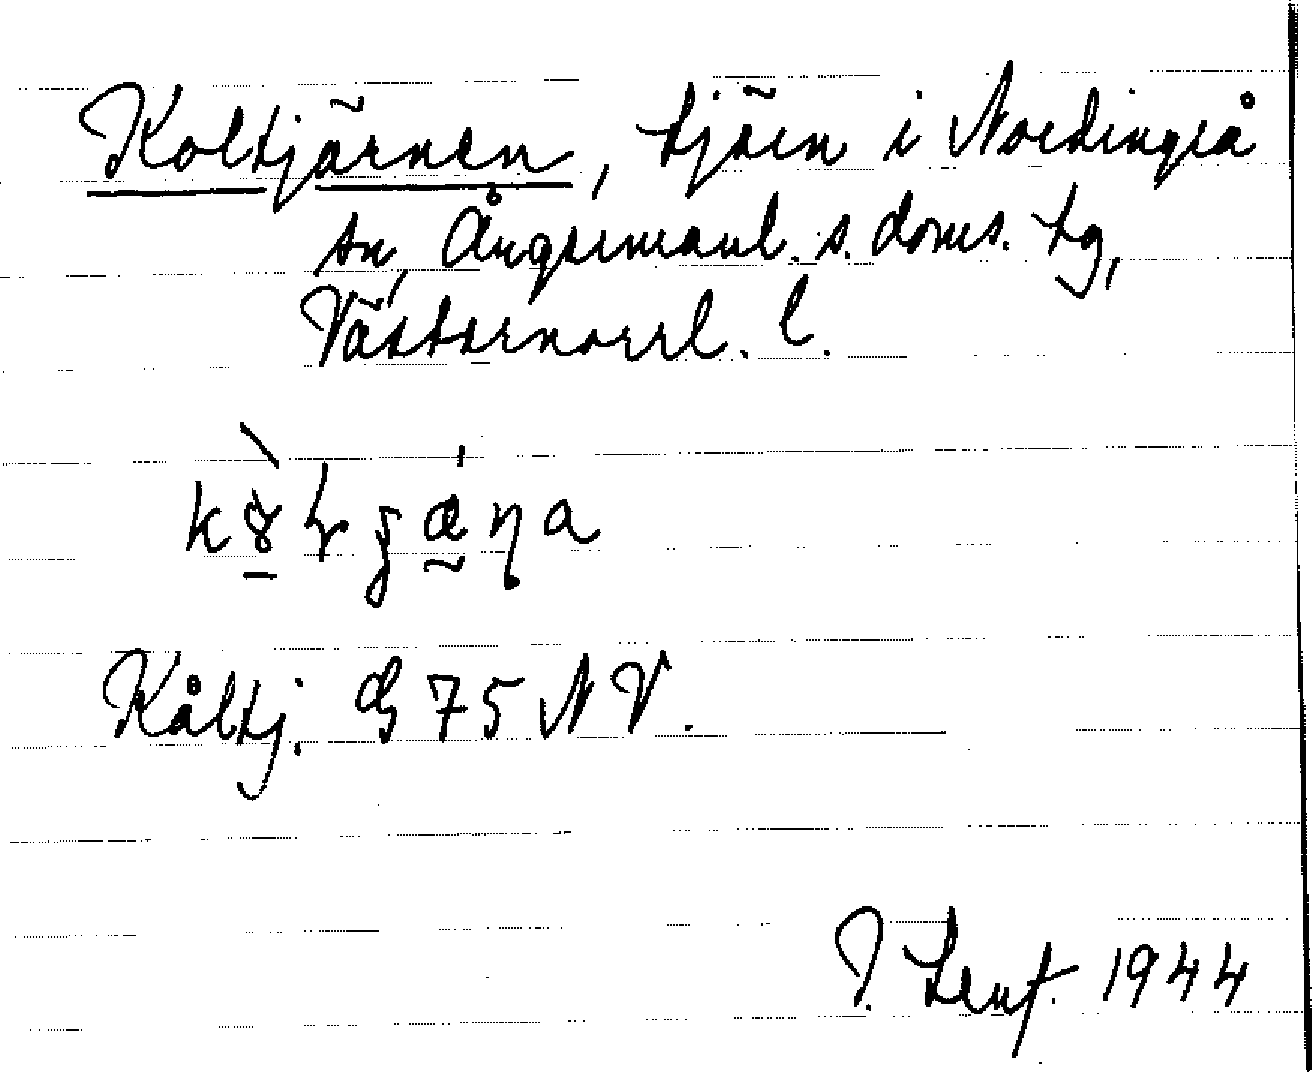 Koltjärnen, tjärn i Nordingrå
sn, Ångermanl. s. doms. tg,
Västernorrl. l.
Kåltj. G 75 NV.
1944